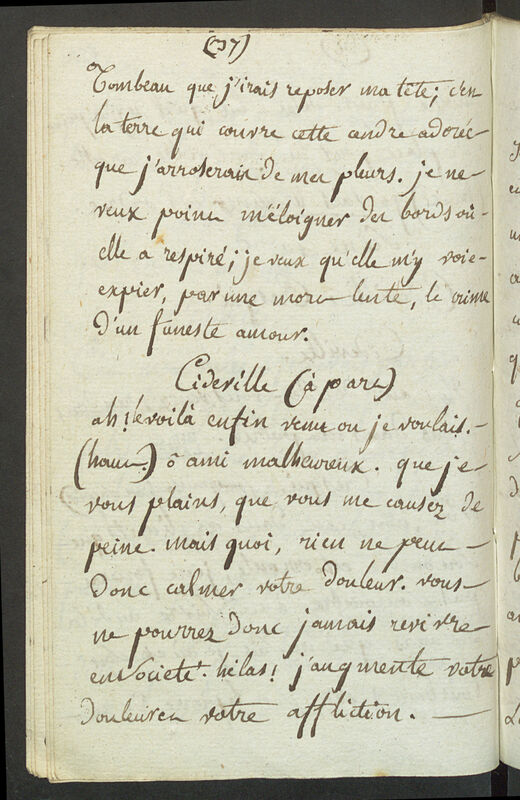 (37)
Tombeau que j'irais reposer ma tête; c'est
la terre qui couvre cette cendre adorée
que j'arroserais de mes pleurs. je ne
veux point m'éloigner des bords où
elle a respiré; je veux qu'elle m'y voie
expier, par une mort lente, le crime
d'un funeste amour.
Cideville (à part)
ah! le voilà enfin venu ou je voulais.
(haut.) ô ami malheureux. que je
vous plains, que vous me causez de
peine. mais quoi, rien ne peut
donc calmer votre douleur. vous
ne pourrez donc jamais revivre
en Societé. hélas! j'augmente votre
douleur et votre affliction.